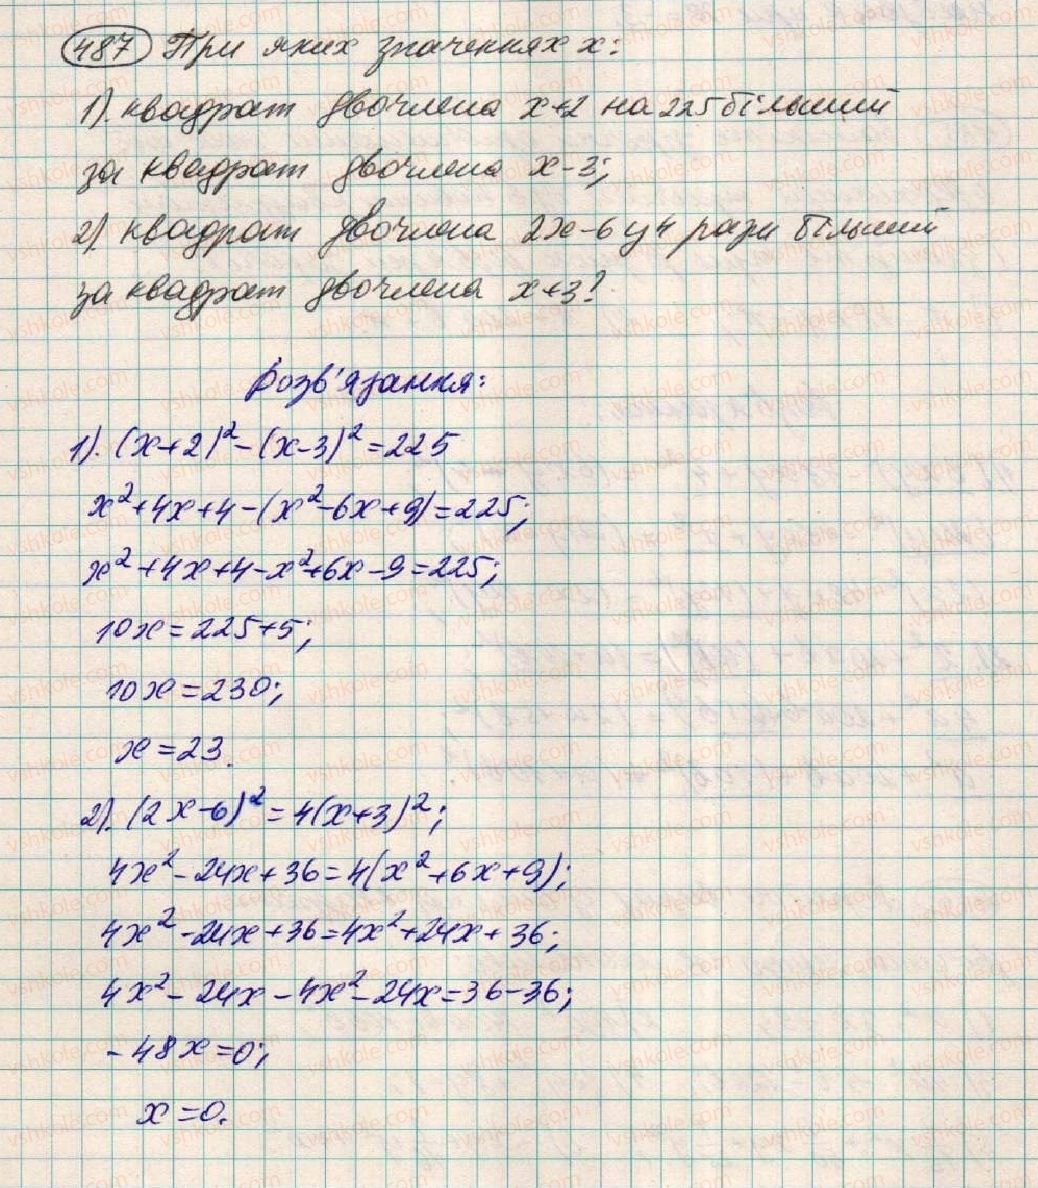 487 При яких значеннях x:
1). квадрат двочлена x+2 на 225 більший
за квадрат двочлена x-3;
2) квадрат двочлена 2x-6 у 4 рази більший
за квадрат двочлена x+3?
Розв'язання:
1). (x+2)²-(x-3)²=225
x²+4x+4-(x²-6x+9)=225;
x²+4x+4-x²+6x-9=225;
10x=225+5;
10x=230;
x=23.
2). (2x-6)²=4(x+3)²;
4x²-24x+36=4(x²+6x+9);
4x²-24x+36=4x²+24x+36;
4x²-24x-4x²-24x=36-36;
-48x=0;
x=0.